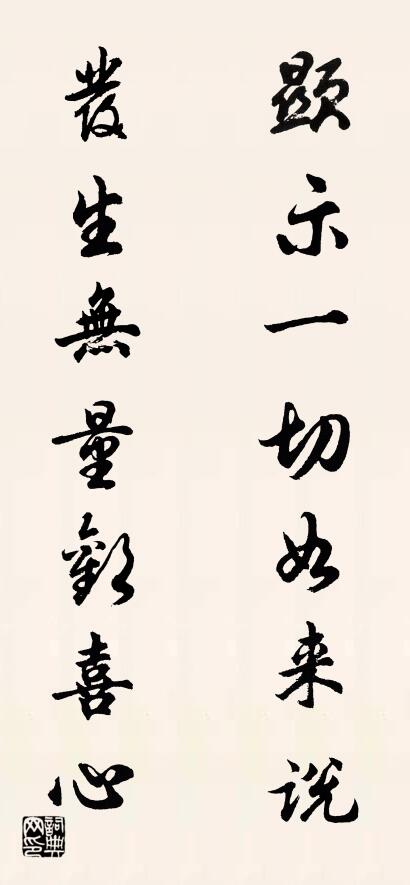 顯示一切如来説
發生無量歡喜心
詞典网印